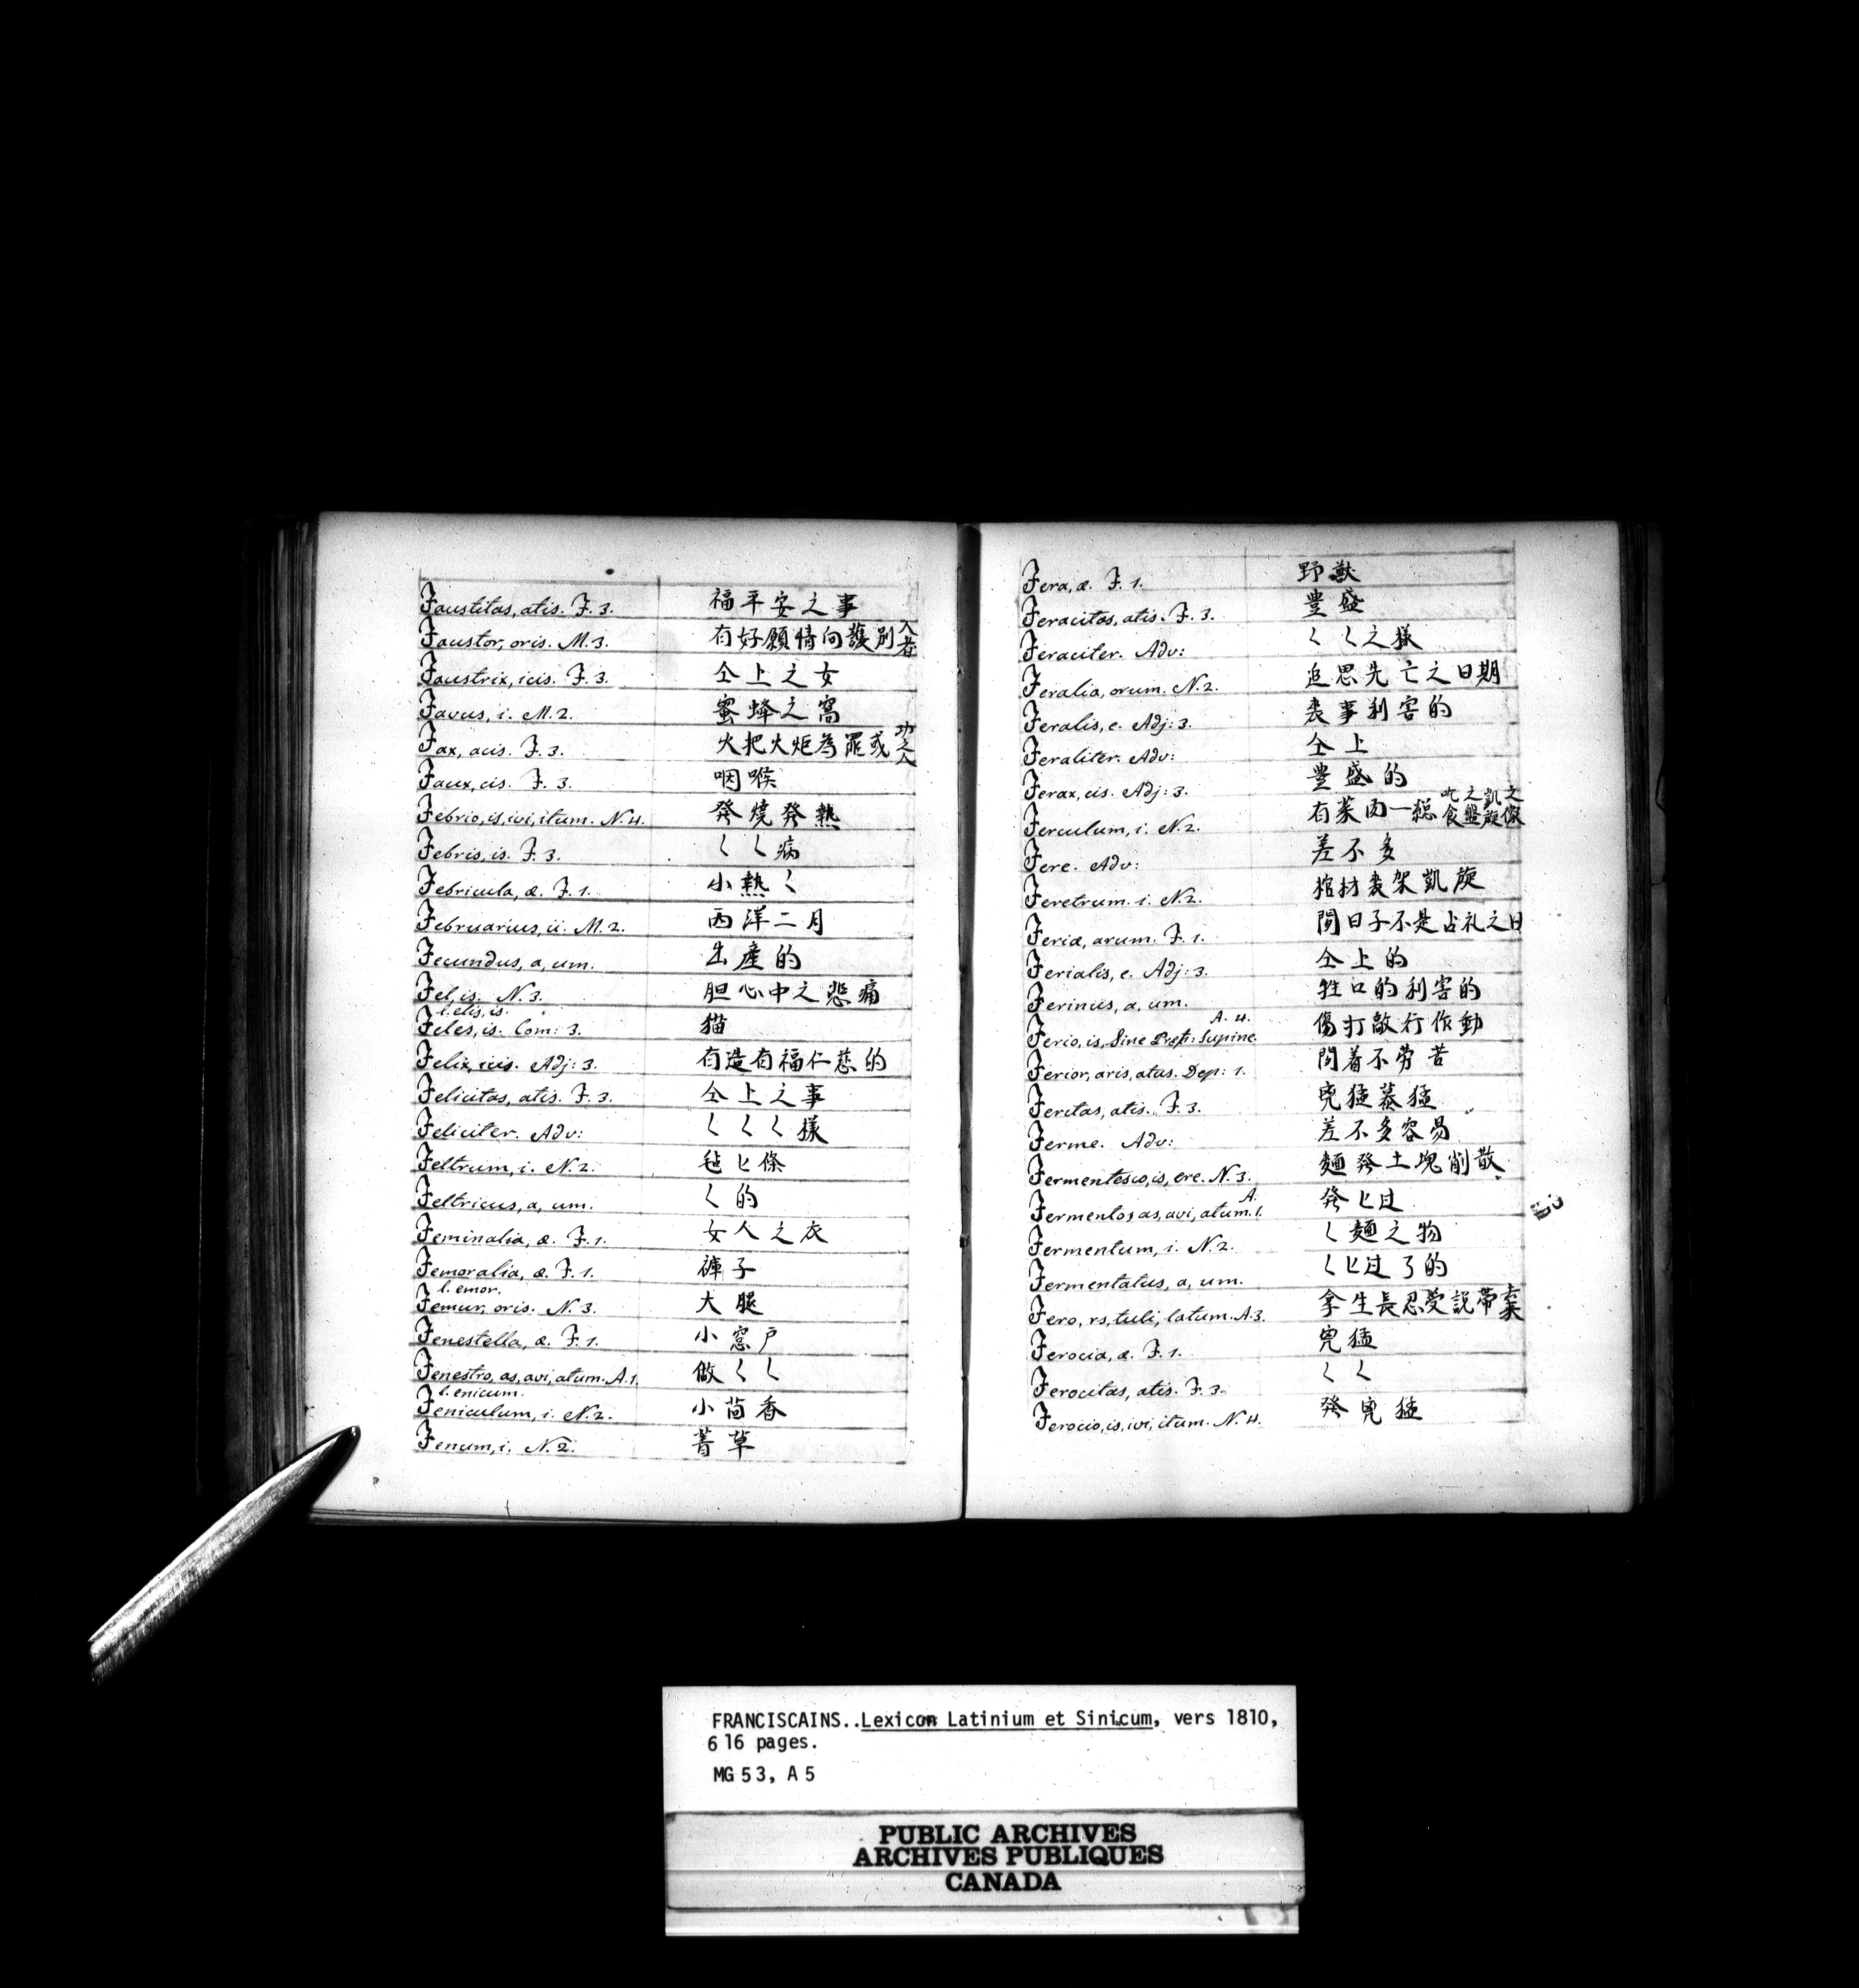 Faustitas, atis. F. 3. 福平安之事
Faustor, oris. M. 3. 有好願情向護別人者
Faustrix, icis. F. 3. 仝上之女
Favus, i. M. 2. 蜜蜂之窩
Fax, acis. F. 3. 火把火炬為罷或功之人
Faux, cis. F. 3. 咽喉
Febrio, is, ivi, itum. N. 4. 發燒發熱
Febris, is. F. 3. 〱〱病
Febricula, æ. F. 1. 小熱〱
Februarius, ii. M. 2. 西洋二月
Fecundus, a, um. 出產的
Fel, is. N. 3. 胆心中之悲痛
l. elis, is.
Feles, is. Com: 3. 猫
Felix, icis. Adj: 3. 有造有福仁慈的
Felicitas, atis. F. 3. 仝上之事
Feliciter. Adv: 〱〱〱樣
Feltrum, i. N. 2. 毡匕條
Feltricus, a, um. 〱的
Feminalia, æ. F. 1. 女人之衣
Femoralia, æ. F. 1. 褲子
l. emor.
Femur, oris. N. 3. 大腿
Fenestella, æ. F. 1. 小窓戶
Fenestro, as, avi, atum. A. 1. 做〱〱
l. enicum.
Feniculum, i. N. 2. 小茴香
Fenum, i. N. 2. 草
Fera, æ. F. 1. 野獸
Feracitas, atis. F. 3. 豐盛
Feraciter. Adv: 〱〱之樣
Feralia, orum. N. 2. 追思先亡之日期
Feralis, e. Adj: 3. 喪事利害的
Feraliter. Adv: 仝上
Ferax, cis. Adj: 3. 豐盛的
Ferculum, i. N. 2. 有菜肉一總吃食之盤凱旋之像
Fere. Adv: 差不多
Feretrum. i. N. 2. 棺材喪架凱旋
Feriæ, arum. F. 1. 間日子不是占礼之日
Ferialis, e. Adj: 3. 仝上的
Ferinus, a, um. 牲口的利害的
A. 4.
Ferio, is, Sine Pret: Supine. 傷打敵行作動
Ferior, aris, atus. Dep: 1. 間着不勞苦
Feritas, atis. F. 3. 兇猛暴猛
Ferme. Adv: 差不多容易
Fermentesco, is, ere. N. 3. 麵發土塊削散
A.
Fermento, as, avi, atum. 1. 發匕过
Fermentum, i. N. 2. 〱麵之物
Fermentatus, a, um. 〱匕过了的
Fero, rs, tuli, latum. A. 3. 拿生長忍受説帶
Ferocia, æ. F. 1. 兇猛
Ferocitas, atis. F. 3. 〱〱
Ferocio, is, ivi, itum. N. 4. 發兇猛
FRANCISCAINS..Lexicon Latinium et Sinicum, vers 1810,
616 pages.
MG 53, A 5
PUBLIC ARCHIVES
ARCHIVES PUBLIQUES
CANADA